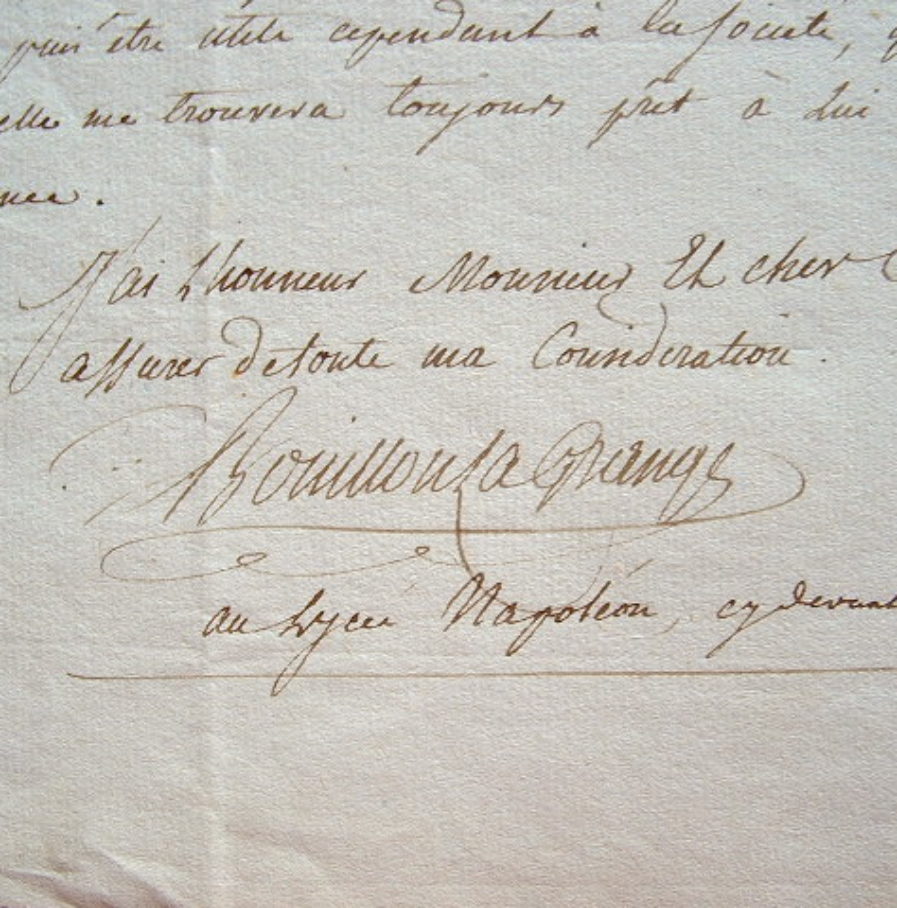 puis être utile cependant à la société, q
elle me trouvera toujours prêt à lui
nce.
J'ai l'honneur Monsieur Et cher C
assurer de toute ma Considération.
Bouillon la Grange
au Lycée Napoléon, cy devant